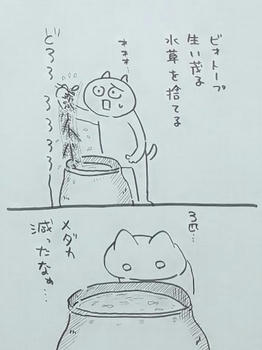 ビオトープ
生い茂る
水草を捨てる
オオオ…
どろろろろろろ
3匹…
メダカ
減ったなぁ…